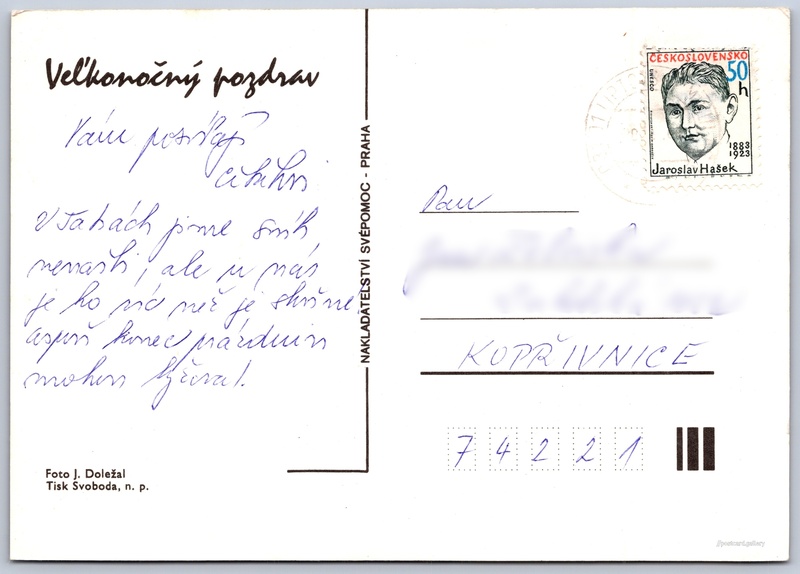 Veľkonočný pozdrav
Vám posílají
V Tatrách jsme sníh
nenašli, ale u nás
je ho víc než je slušné.
aspoň konec prázdnin
mohou lyžovat.
Foto J. Doležal
Tisk Svoboda, n. p.
NAKLADATELSTVÍ SVÉPOMOC - PRAHA
ČESKOSLOVENSKO
50 h
UNESCO
1883
1923
Jaroslav Hašek
Pan
KOPŘIVNICE
74221